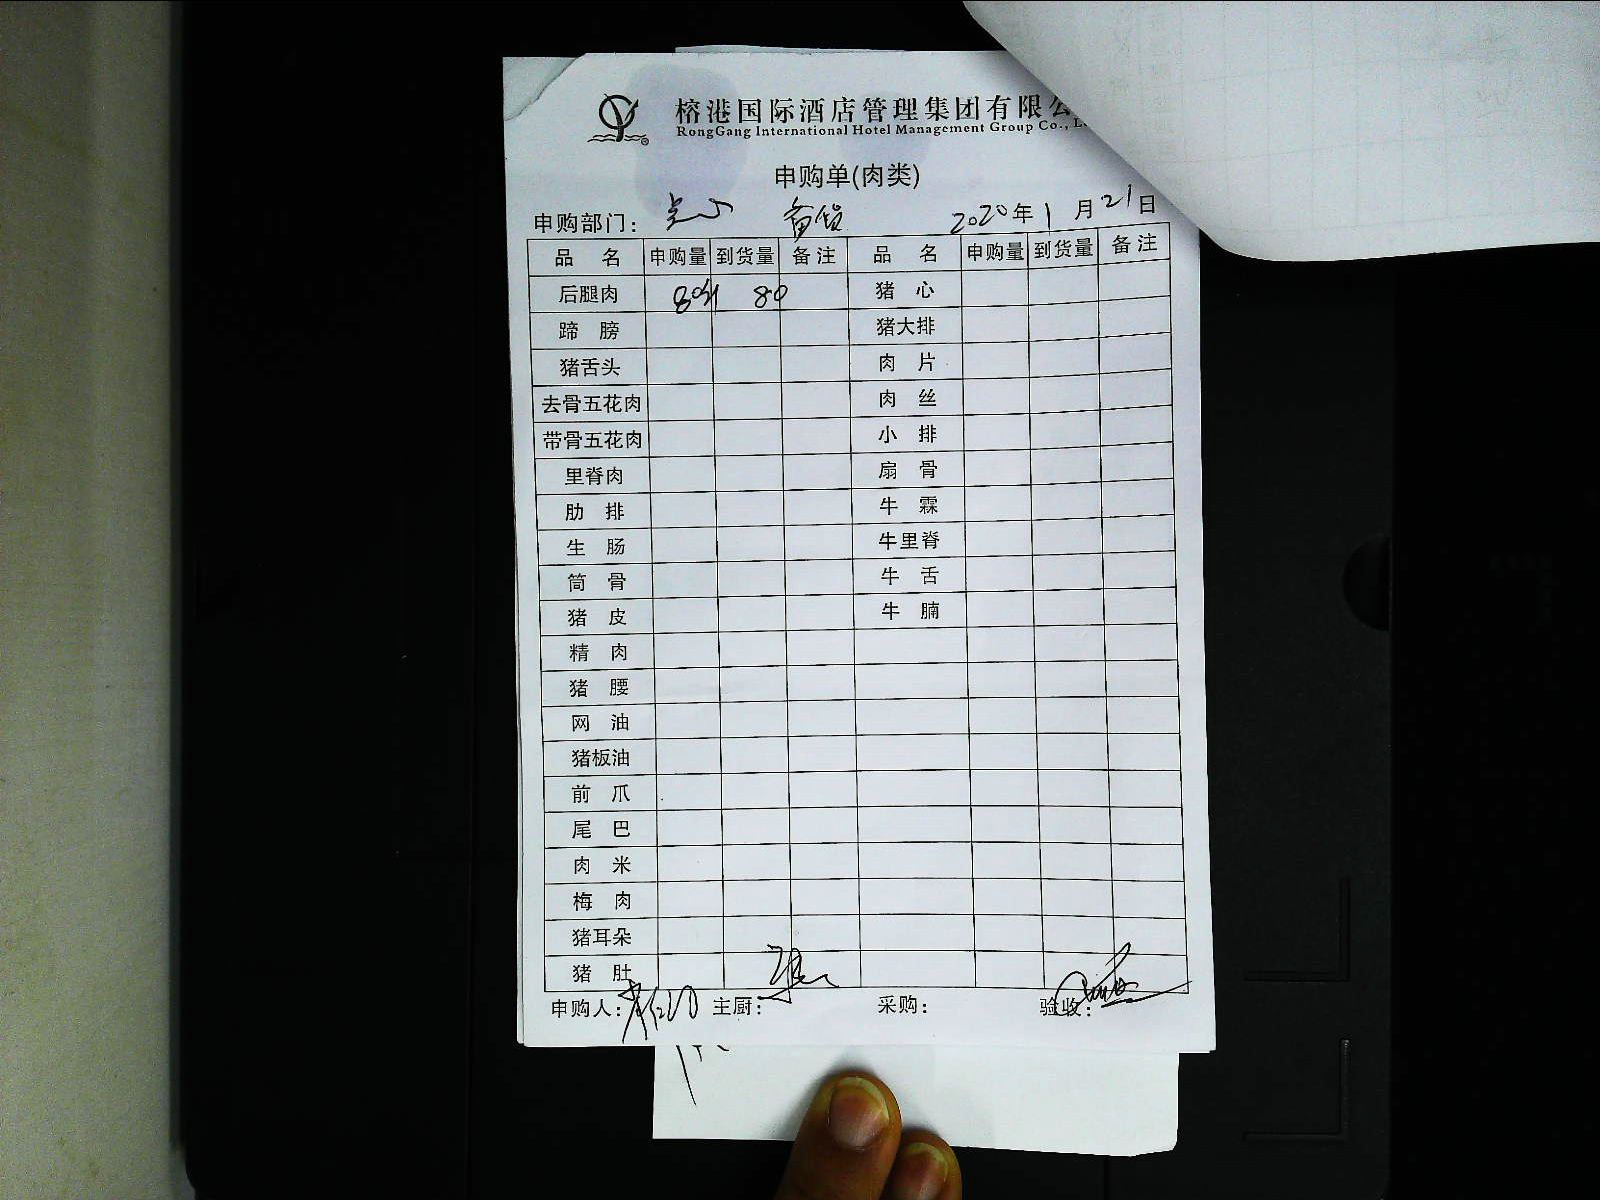 榕港国际酒店管理集团有限公
RongGang International Hotel Management Group Co., L
申购单(肉类)
申购部门： 点心 备货 2020年1月21日
品 名 申购量 到货量 备注 品 名 申购量 到货量 备注
后腿肉 80斤 80 猪 心
蹄 膀 猪大排
猪舌头 肉 片
去骨五花肉 肉 丝
带骨五花肉 小 排
里脊肉 扇 骨
肋 排 牛 霖
生 肠 牛里脊
筒 骨 牛 舌
猪 皮 牛 腩
精 肉
猪 腰
网 油
猪板油
前 爪
尾 巴
肉 米
梅 肉
猪耳朵
猪 肚
申购人： 主厨： 采购： 验收：